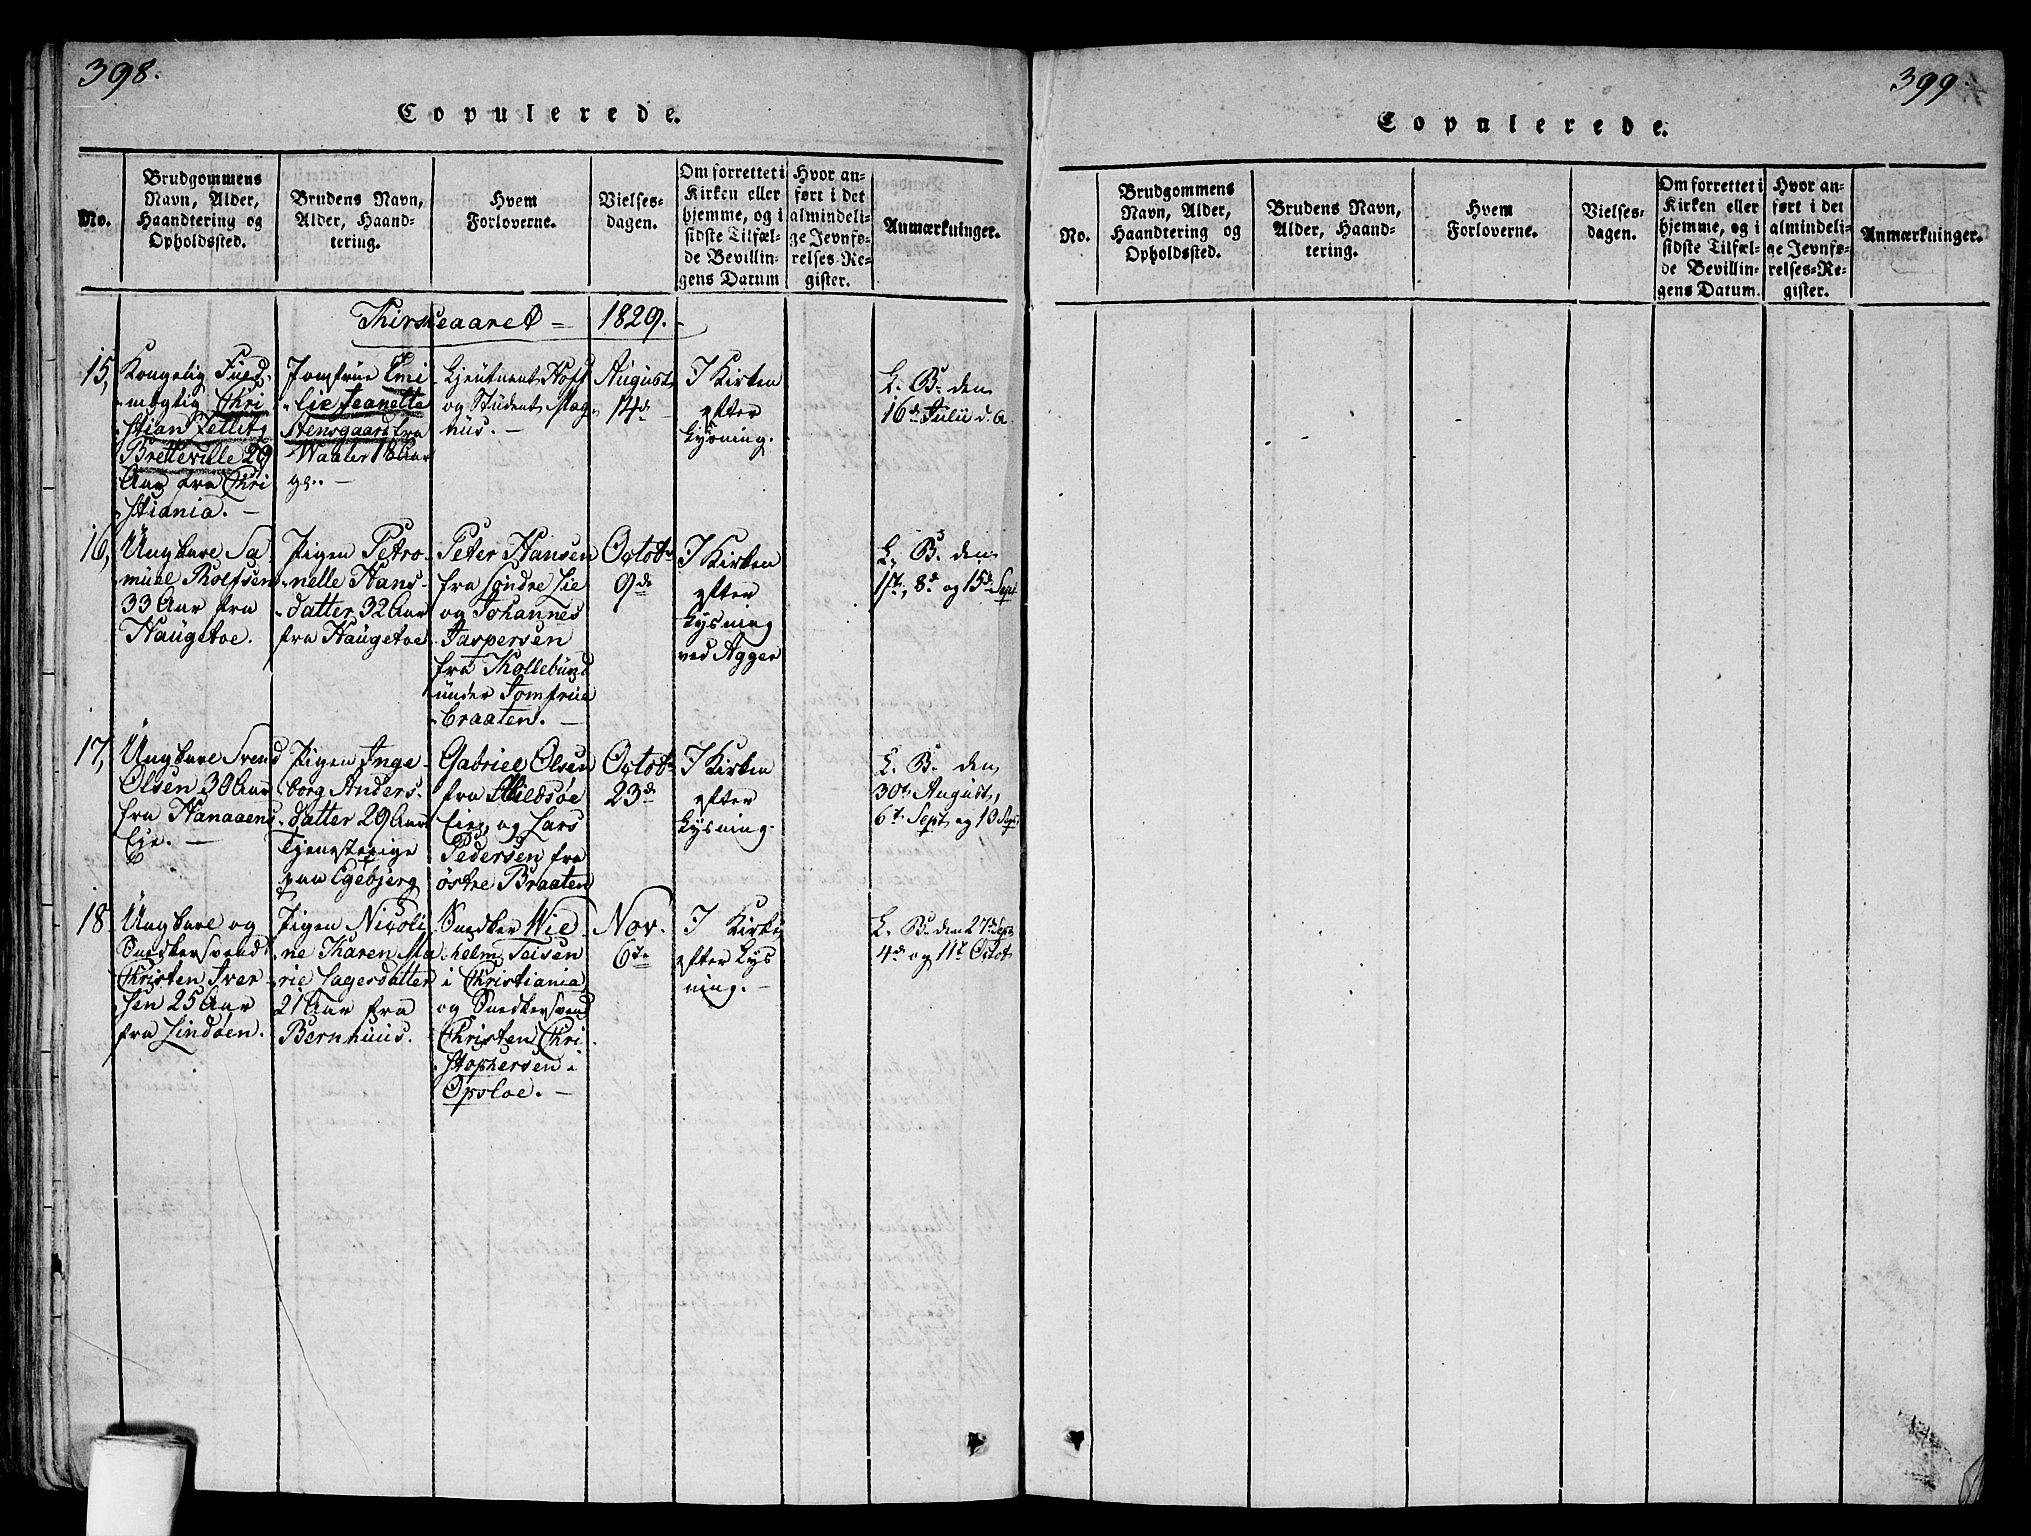 398.
Copulerede.
No.
Brudgommens
Navn, Alder,
Haandtering og
Opholdssted.
Brudens Navn,
Alder, Haand-
tering.
Hvem
Forloverne.
Vielses-
dagen.
Om forrettet i
Kirken eller
hjemme, og i
sidste Tilfæl-
de Bevillin-
gens Datum
Hvor an-
ført i det
almindeli-
ge Jevnfø-
relses-Re-
gister.
Anmærkninger.
1829.
15,
Kongelig Fuld-
mægtig Chri
stian Zetlitz
Bretteville 29
Aar fra Chri
stiania. -
Jomfrue Emi
lie Jeanette
Stensgaard fra
Waaler 18 Aar
Lieutnent Hoff
og Student Mag-
nus. -
August
14de
I Kirken
efter
Lysning.
L. B. den
16de Julii d. A
16,
Ungkarl Sa
muel Rolfsen
33 Aar fra
Haugetoe.
Pigen Petro-
nelle Hans-
datter 32 Aar
fra Haugetoe
Peter Hansen
fra Søndre Lie
og Johannes
Jaspersen
fra Kollebund
under Jomfrue
braaten. -
Octobr
9de
I Kirken
efter
Lysning
ved Agger
L. B. den
1ste, 8de og 15de Sept
17,
Ungkarl Svend
Olsen 30 Aar
fra Hanaaens
Eje. -
Pigen Inge-
borg Anders-
datter 29 Aar
Tjenestepige
paa Egebjerg
Gabriel Olsen
fra Mildsøe
Eie, og Lars
Pedersen fra
østre Braaten
Octobr
23de
I Kirken
efter
Lysning.
L. B. den
30te August,
6te Sept og 10 Sept
18
Ungkarl og
Snedkersvend
Christen Iver-
sen 25 Aar
fra Lindøen.
Pigen Nicoli
ne Karen Ma
rie Lagesdatter
21 Aar fra
Bernhuus.
Snedker Wil
helm Teisen
i Christiania
og Snedkersvend
Christen Chri
stophersen i
Opsloe. -
Nov.
6te
I Kirke
efter Lys
ning. -
L. B. den 27de Sept
4de og 11te Octobr
399.
Copulerede.
No.
Brudgommens
Navn, Alder,
Haandtering og
Opholdssted.
Brudens Navn,
Alder, Haand-
tering.
Hvem
Forloverne.
Vielses-
dagen.
Om forrettet i
Kirken eller
hjemme, og i
sidste Tilfæl-
de Bevillin-
gens Datum.
Hvor an-
ført i det
almindeli-
ge Jevnfø-
relses-Re-
gister.
Anmærkninger.